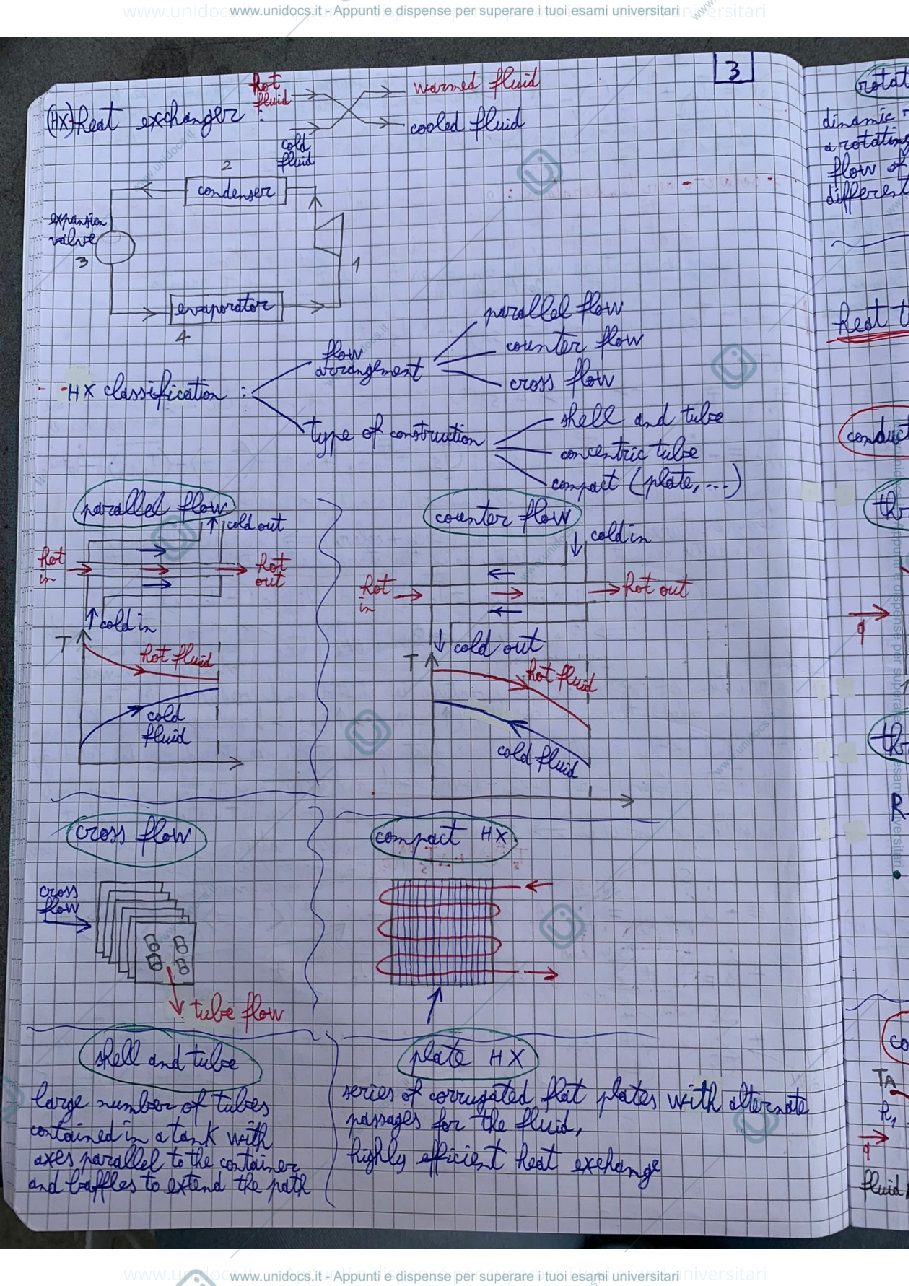 www.unidocs.it - Appunti e dispense per superare i tuoi esami universitari
3
(HX) heat exchanger :
hot
fluid
warmed fluid
cold
fluid
cooled fluid
2
condenser
expansion
valve
3
1
evaporator
4
HX classification :
flow
arrangment
parallel flow
counter flow
cross flow
type of construction
shell and tube
concentric tube
compact (plate, ...)
parallel flow
cold out
hot
in
hot
out
cold in
T
hot fluid
cold
fluid
counter flow
cold in
hot
in
hot out
cold out
T
hot fluid
cold fluid
cross flow
cross
flow
tube flow
compact HX
shell and tube
large number of tubes
contained in a tank with
axes parallel to the container
and baffles to extend the path
plate HX
series of corrugated flat plates with alternate
passages for the fluid,
highly efficient heat exchange
rotat
dinamic
a rotating
flow of
different
heat t
conduct
th
q
th
R
co
TA
h1
q
fluid
www.unidocs.it - Appunti e dispense per superare i tuoi esami universitari